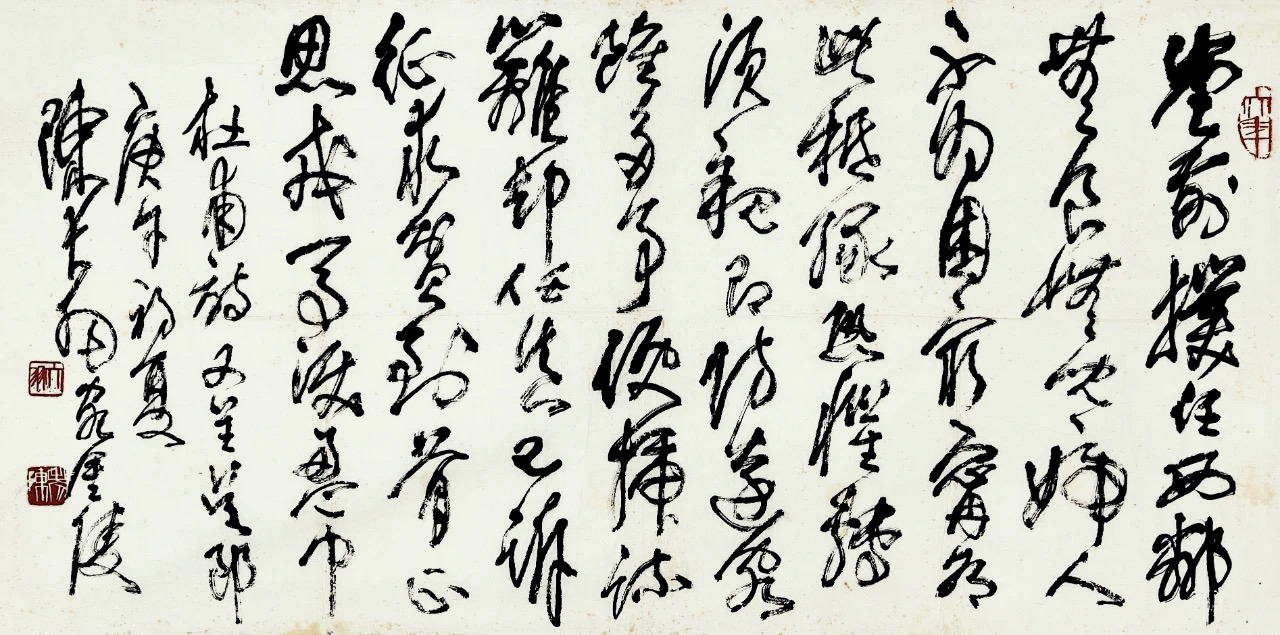 堂前撲任西鄰
無食無兒一婦人
不為困窮寧有
此祇緣恐懼轉
須親即防遠客
雖多事便插疏
籬却任真已訴
征求貧到骨正
思戎馬淚盈巾
杜甫詩又呈吳郎
庚午初夏
陳大羽客金陵
大羽